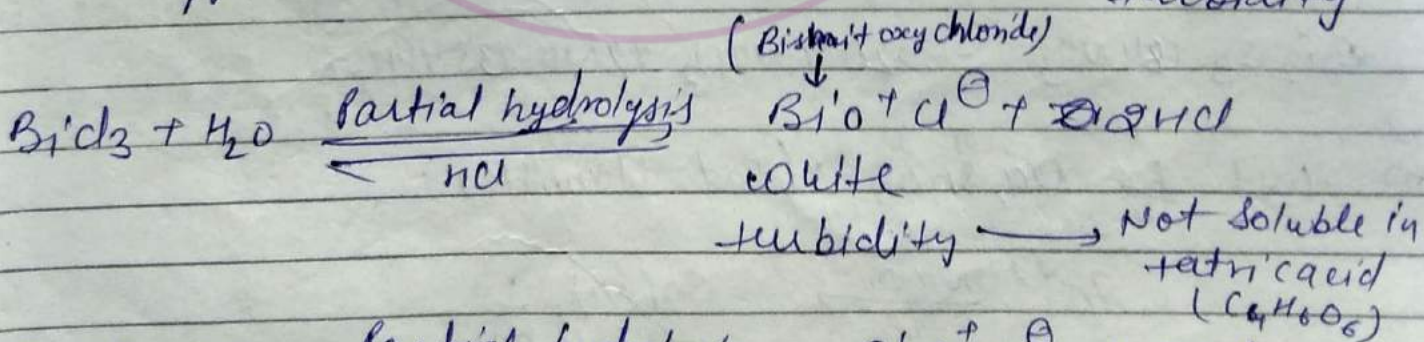 (Bismuit oxychloride)
↓
BiCl3 + H2O Partial hydrolysis BiO+ Cl⊖ + 2HCl
HCl white
turbidity → Not Soluble in
tatricacid
(C4H6O6)